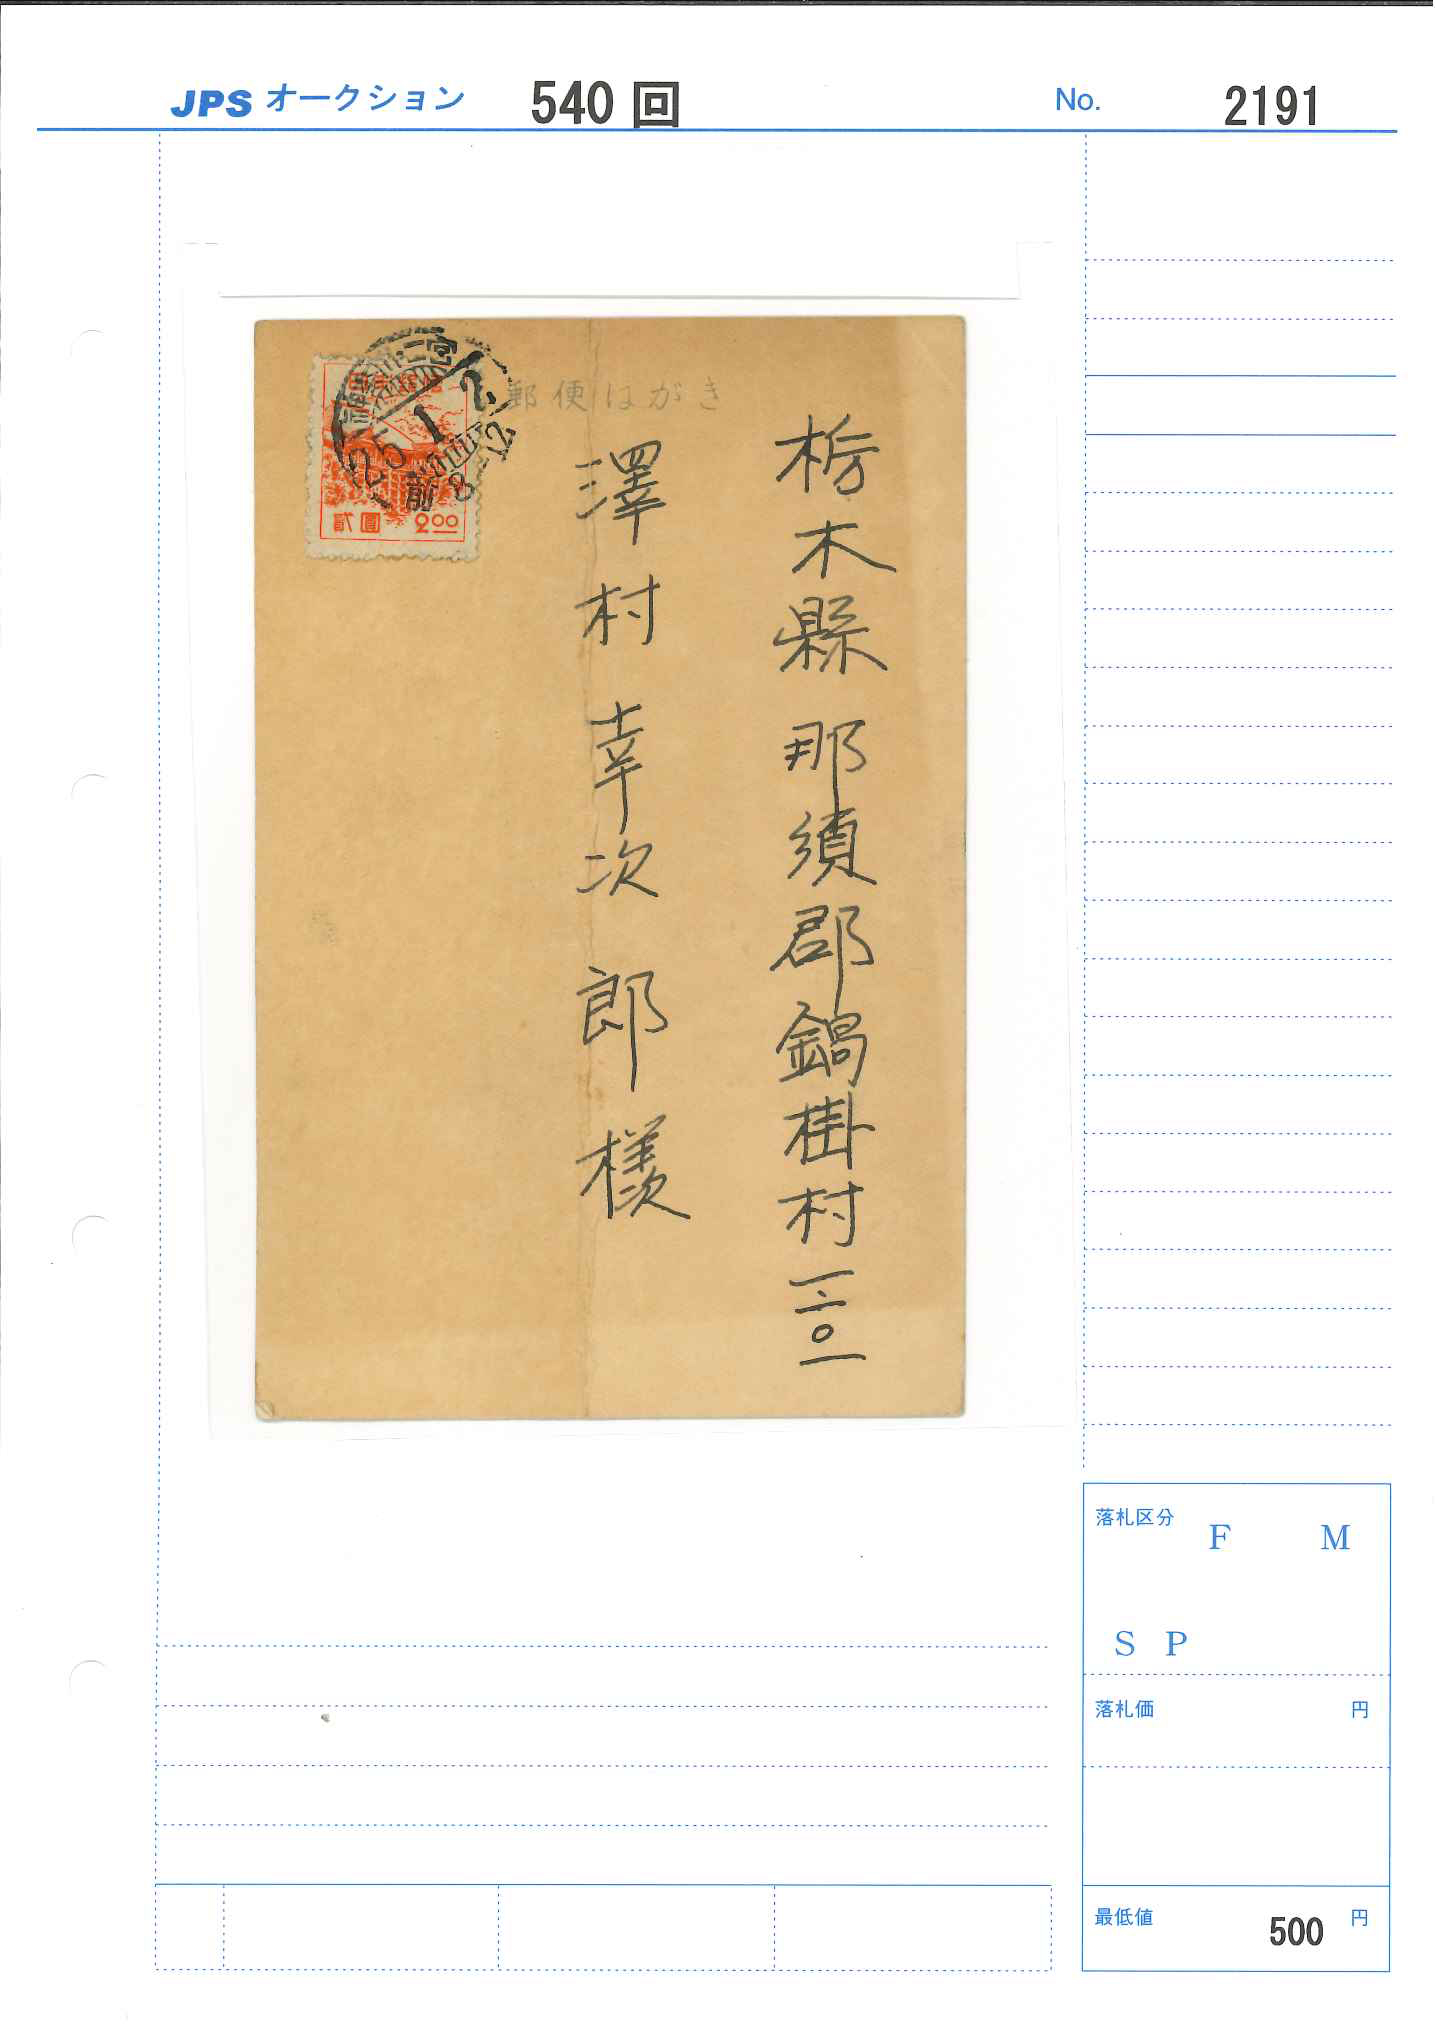 JPS オークション 540 回 No. 2191
日本郵便
25.1.2
前 8-12
貳圓 2.00
郵便はがき
栃木縣那須郡鍋掛村一二〇一
澤村幸次郎様
落札区分 F M
S P
落札価 円
最低値 500 円